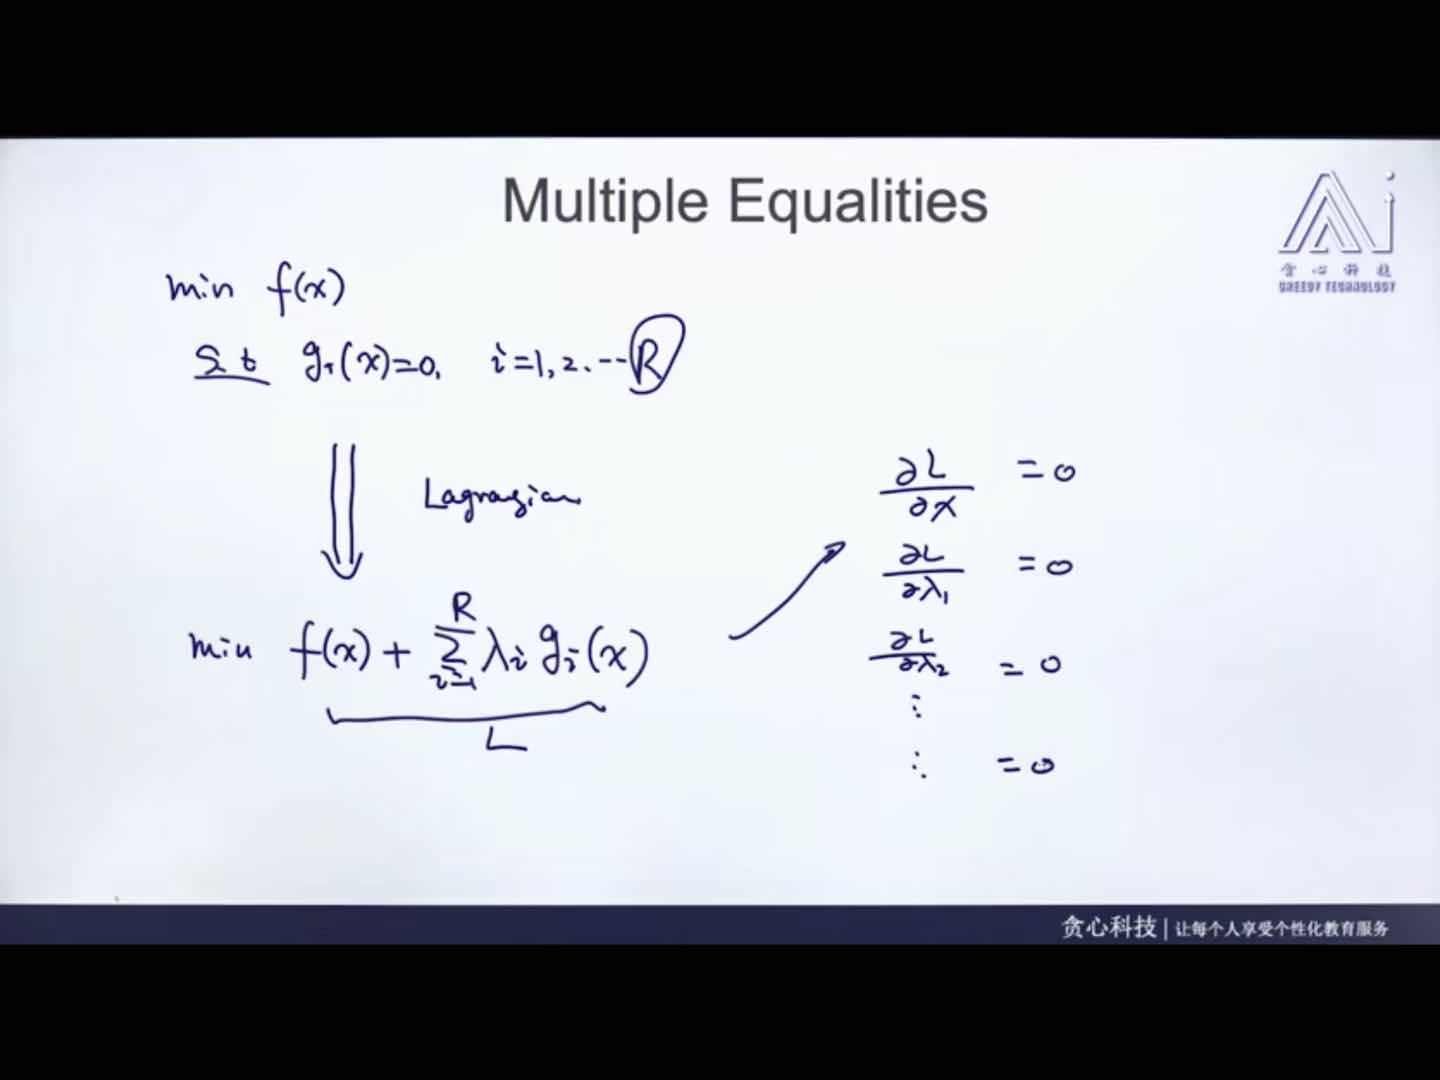 Multiple Equalities
贪心科技
GREEDY TECHNOLOGY
min f(x)
s.t gᵢ(x)=0, i=1,2.---R
Lagragian
min f(x) + Σᵢ₌₁ᴿ λᵢ gᵢ(x)
L
∂L/∂x = 0
∂L/∂λ₁ = 0
∂L/∂λ₂ = 0
⋮
⋮ = 0
贪心科技 | 让每个人享受个性化教育服务